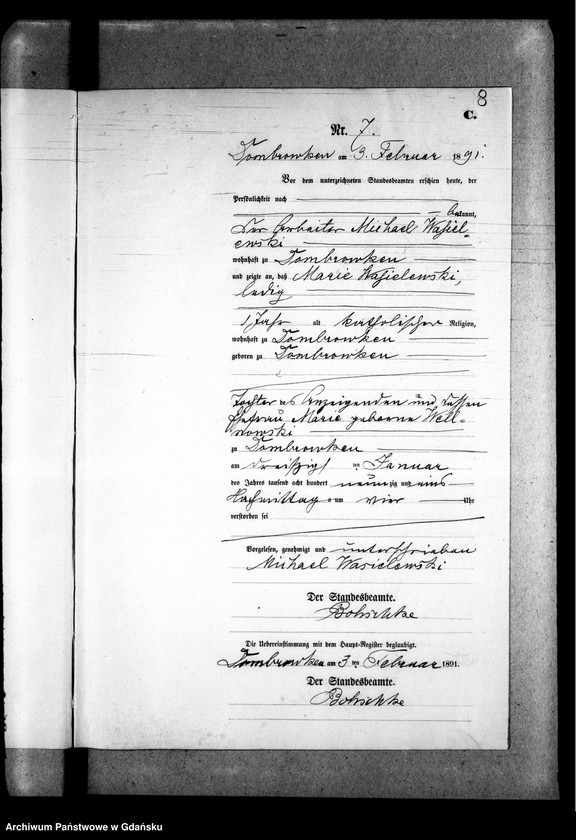 8
C.
Nr. 7.
Dombrowken am 3. Februar 1891.
Vor dem unterzeichneten Standesbeamten erschien heute, der
Persönlichkeit nach
bekannt,
der Arbeiter Michael Wasiel-
ewski
wohnhaft zu Dombrowken
und zeigte an, daß Marie Wasielewski,
ledig
1 Jahr alt katholischer Religion,
wohnhaft zu Dombrowken
geboren zu Dombrowken
Tochter des Anzeigenden und dessen
Ehefrau Marie geborene Well-
nowski
zu Dombrowken
am dreißigsten Januar
des Jahres tausend acht hundert neunzig und eins
Nachmittags um vier Uhr
verstorben sei
Vorgelesen, genehmigt und unterschrieben
Michael Wasielewski
Der Standesbeamte.
Die Uebereinstimmung mit dem Haupt-Register beglaubigt.
Dombrowken am 3 ten Februar 1891.
Der Standesbeamte.
Archiwum Państwowe w Gdańsku